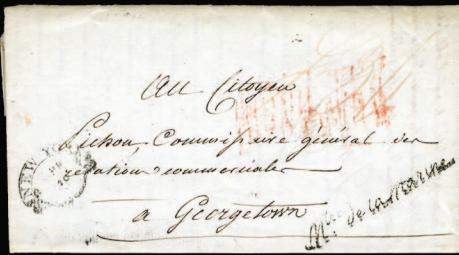 Au Citoyen
Pichon Commissaire général des
relations commerciales
a Georgetown
NEW YO
Mtre de la Marine